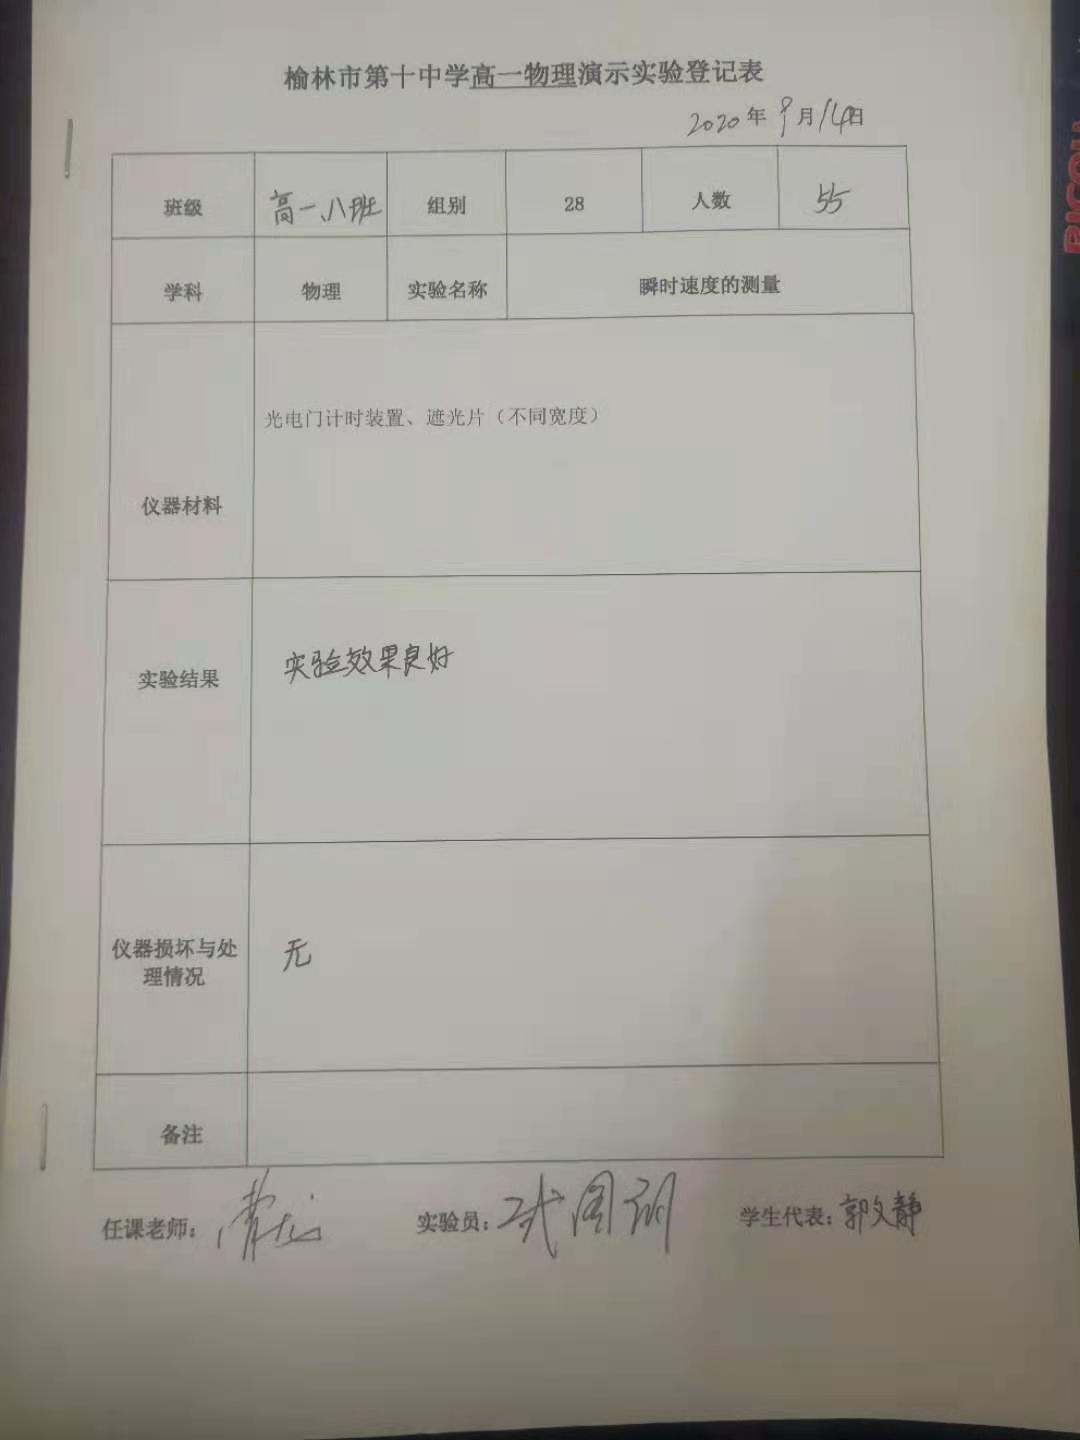 榆林市第十中学高一物理演示实验登记表
2020年9月14日
班级 高一、八班 组别 28 人数 55
学科 物理 实验名称 瞬时速度的测量
光电门计时装置、遮光片（不同宽度）
仪器材料
实验效果良好
实验结果
仪器损坏与处
理情况
无
备注
任课老师: 实验员: 学生代表: 郭文静
RICOH